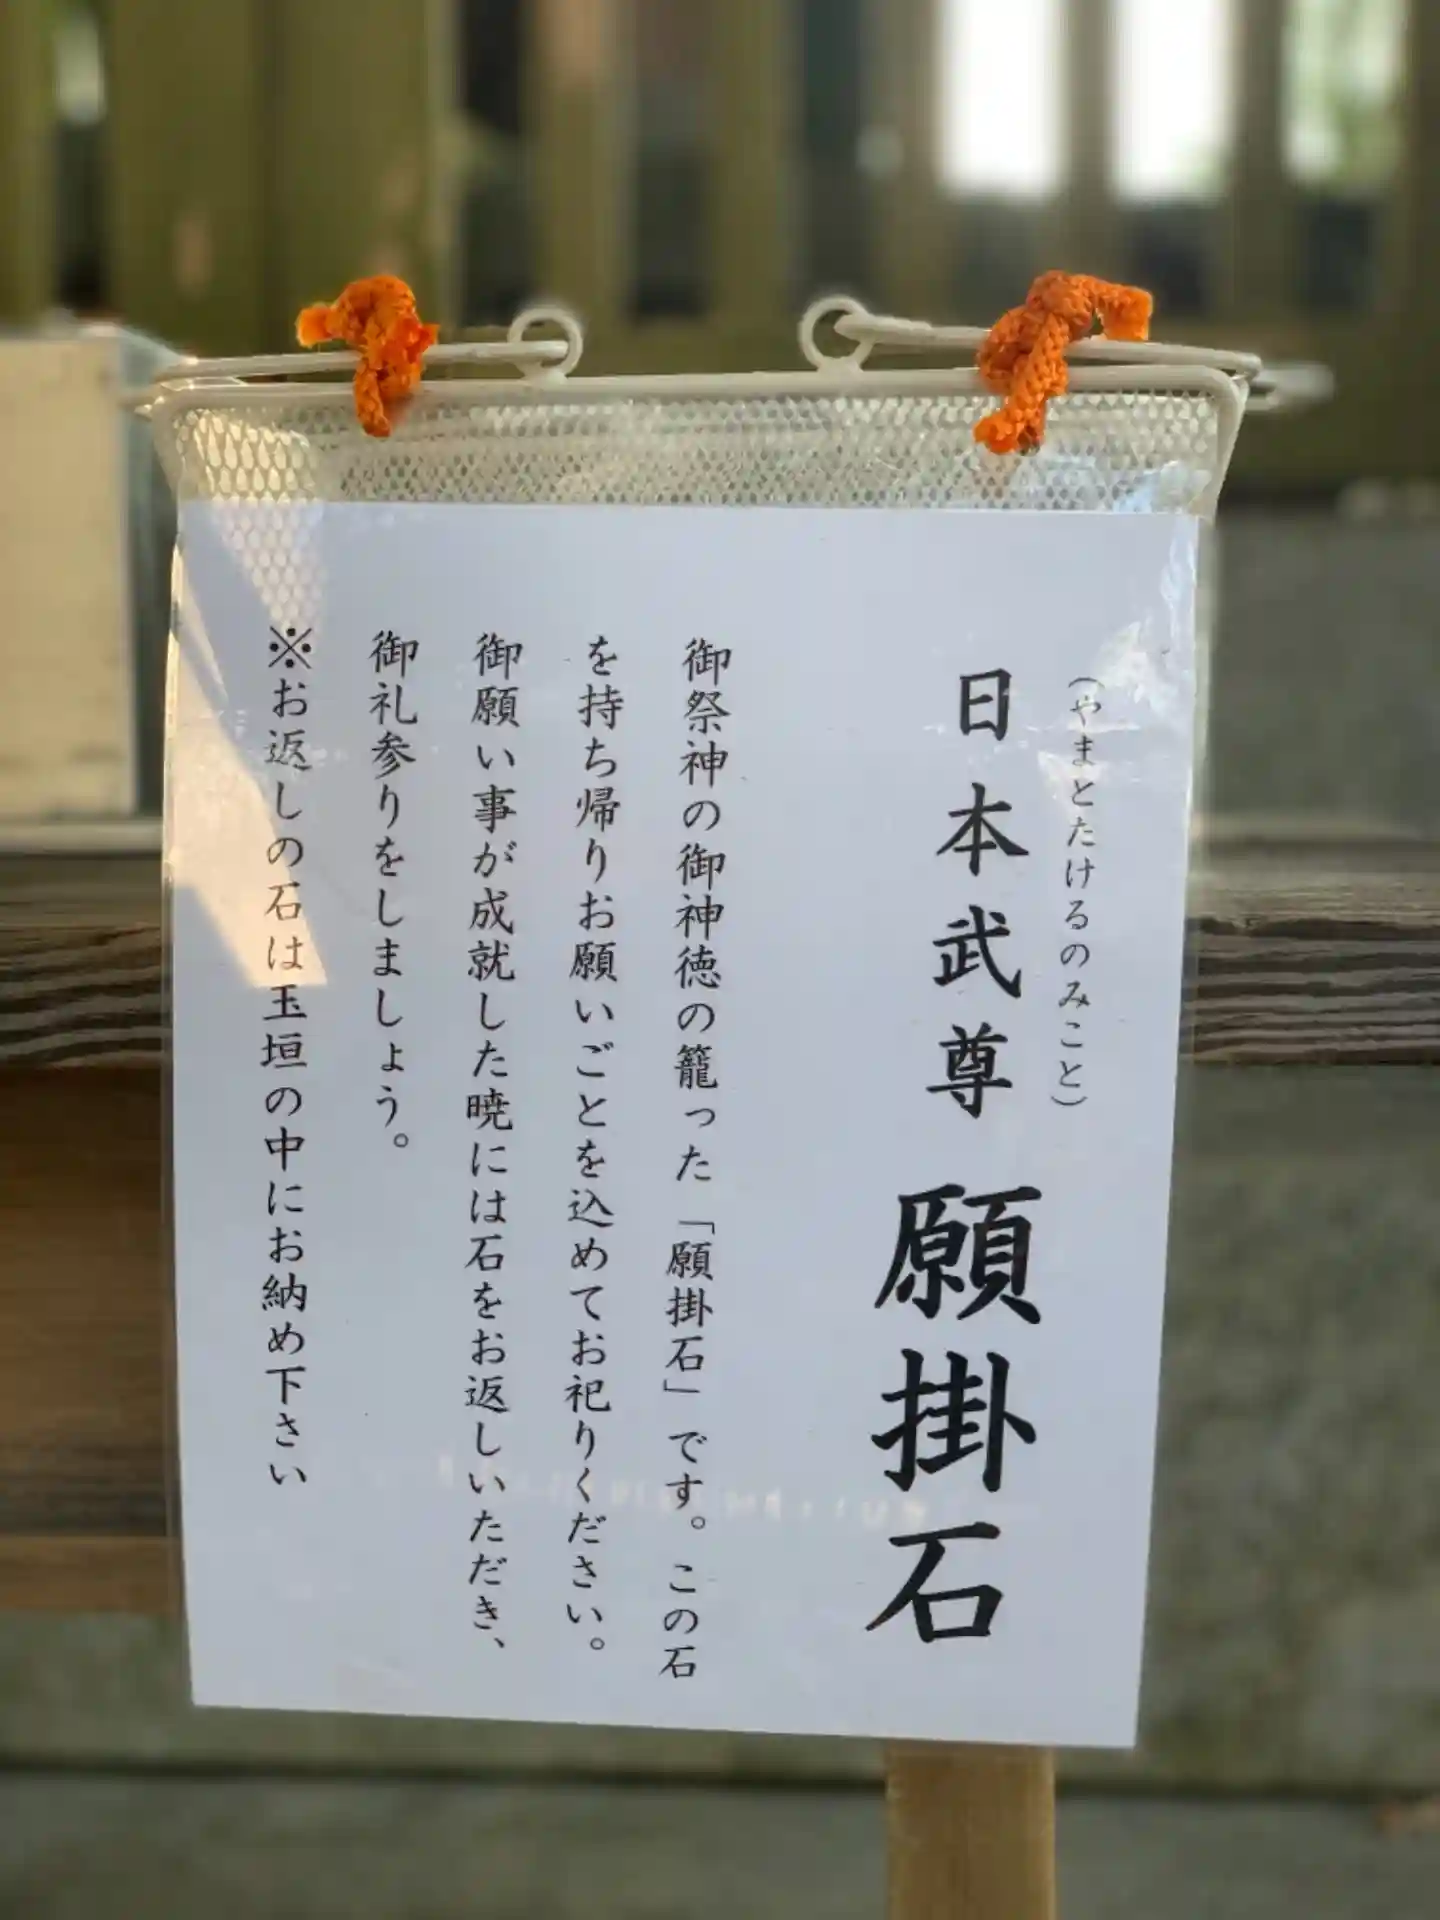 (やまとたけるのみこと)
日本武尊 願掛石
御祭神の御神徳の籠った「願掛石」です。この石
を持ち帰りお願いごとを込めてお祀りください。
御願い事が成就した暁には石をお返しいただき、
御礼参りをしましょう。
※お返しの石は玉垣の中にお納め下さい